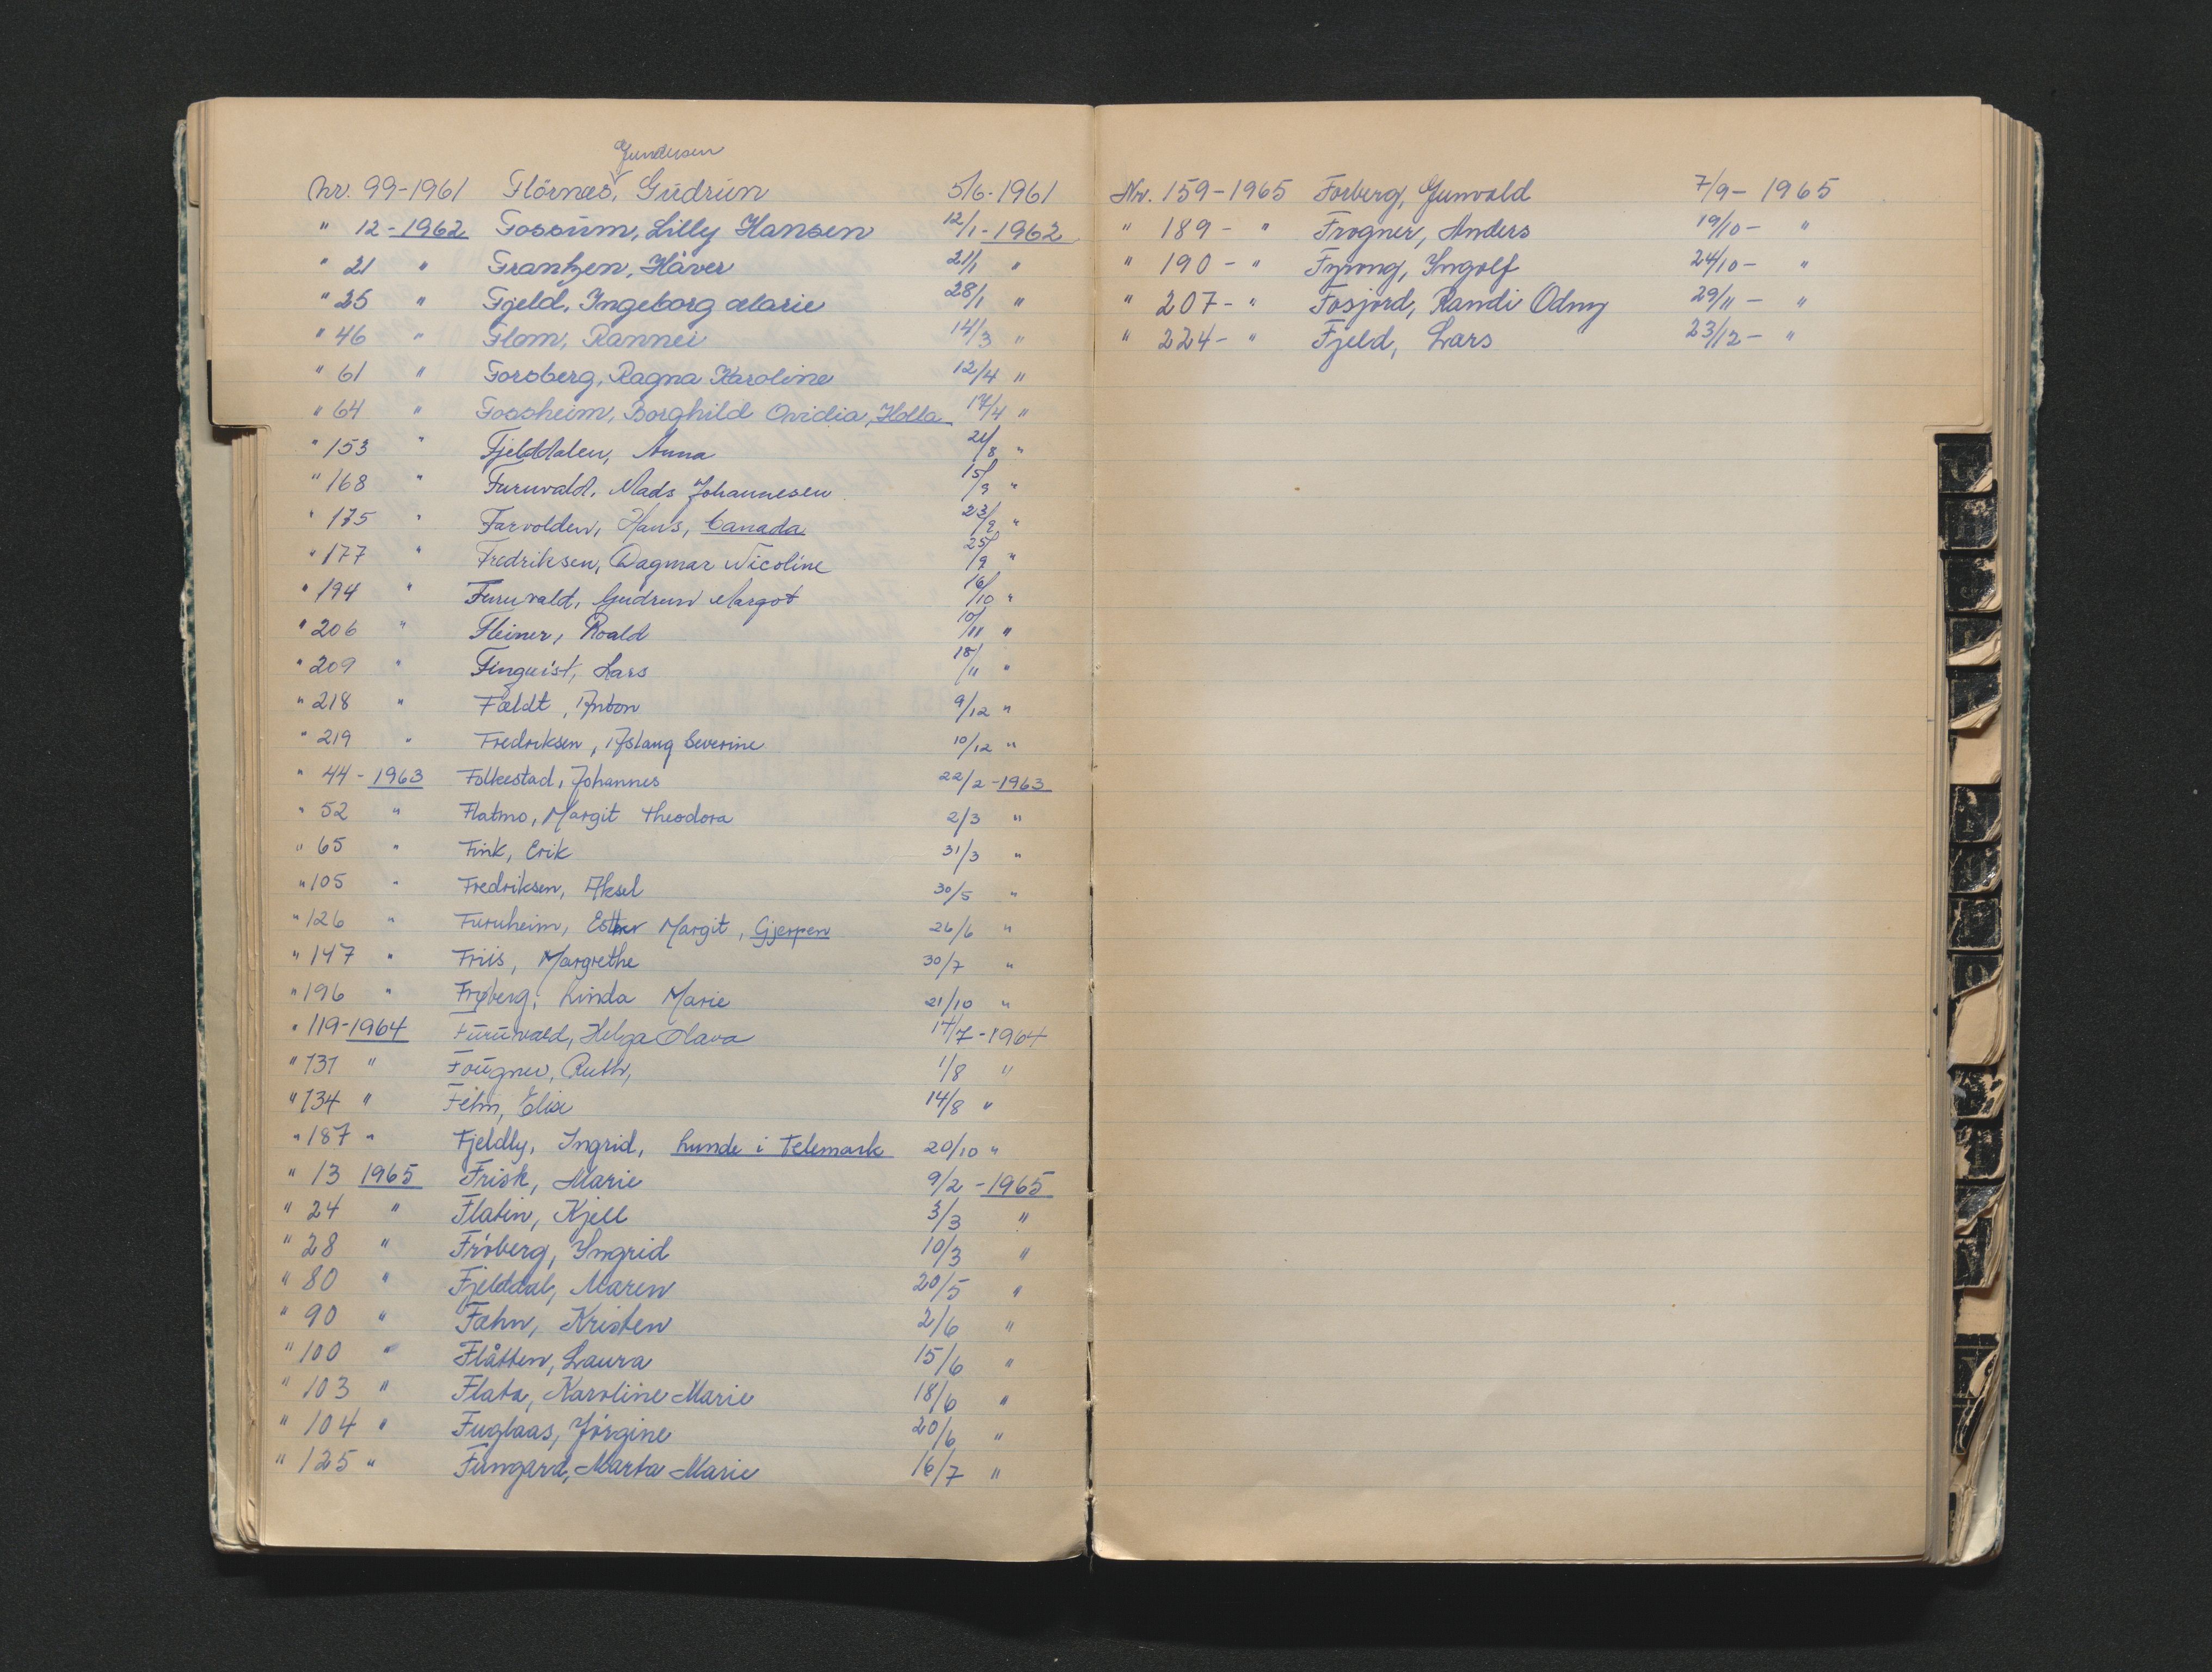 Gundersen
Nr. 99-1961 Flörnæs, Gudrun 5/6-1961
" 12-1962 Fossum, Lilly Hansen 12/1-1962
" 21 " Frantzen, Håver 21/1 "
" 25 " Fjeld, Ingeborg Marie 28/1 "
" 46 " Flom, Rannei 14/3 "
" 61 " Forsberg, Ragna Karoline 12/4 "
" 64 " Fossheim, Borghild Ovidia, Holla 17/4 "
" 153 " Fjelddalen, Anna 21/8 "
" 168 " Furuvald, Mads Johannesen 15/9 "
" 175 " Farvolden, Hans, Canada 23/9 "
" 177 " Fredriksen, Dagmar Nicoline 25/9 "
" 194 " Furuvald, Gudrun Margot 16/10 "
" 206 " Fleiner, Roald 10/11 "
" 209 " Finquist, Lars 18/11 "
" 218 " Fældt, Anton 9/12 "
" 219 " Fredriksen, Aslaug Severine 10/12 "
" 44-1963 Folkestad, Johannes 22/2-1963
" 52 " Flatmo, Margit Theodora 2/3 "
" 65 " Fink, Erik 31/3 "
" 105 " Fredriksen, Aksel 30/5 "
" 126 " Furuheim, Esther Margit, Gjerpen 26/6 "
" 147 " Friis, Margrethe 30/7 "
" 196 " Frøberg, Linda Marie 21/10 "
" 119-1964 Furuvald, Helga Olava 14/7-1964
" 131 " Fougner, Ruth, 1/8 "
" 134 " Fehn, Elise 14/8 "
" 187 " Fjeldly, Ingrid, Lunde i Telemark 20/10 "
" 13 1965 Frisk, Marie 9/2-1965
" 24 " Flatin, Kjell 3/3 "
" 28 " Fröberg, Yngrid 10/3 "
" 80 " Fjelddal, Maren 20/5 "
" 90 " Fahn, Kristen 2/6 "
" 100 " Flåtten, Laura 15/6 "
" 103 " Flata, Karoline Marie 18/6 "
" 104 " Fuglaas, Jörgine 20/6 "
" 125 " Fumgard, Marta Marie 16/7 "
Nr. 159-1965 Forberg, Gunvald 7/9-1965
" 189- " Frogner, Anders 19/10- "
" 190- " Fyrong, Yngolf 24/10- "
" 207- " Fosjord, Randi Odny 29/11- "
" 224- " Fjeld, Lars 23/12- "